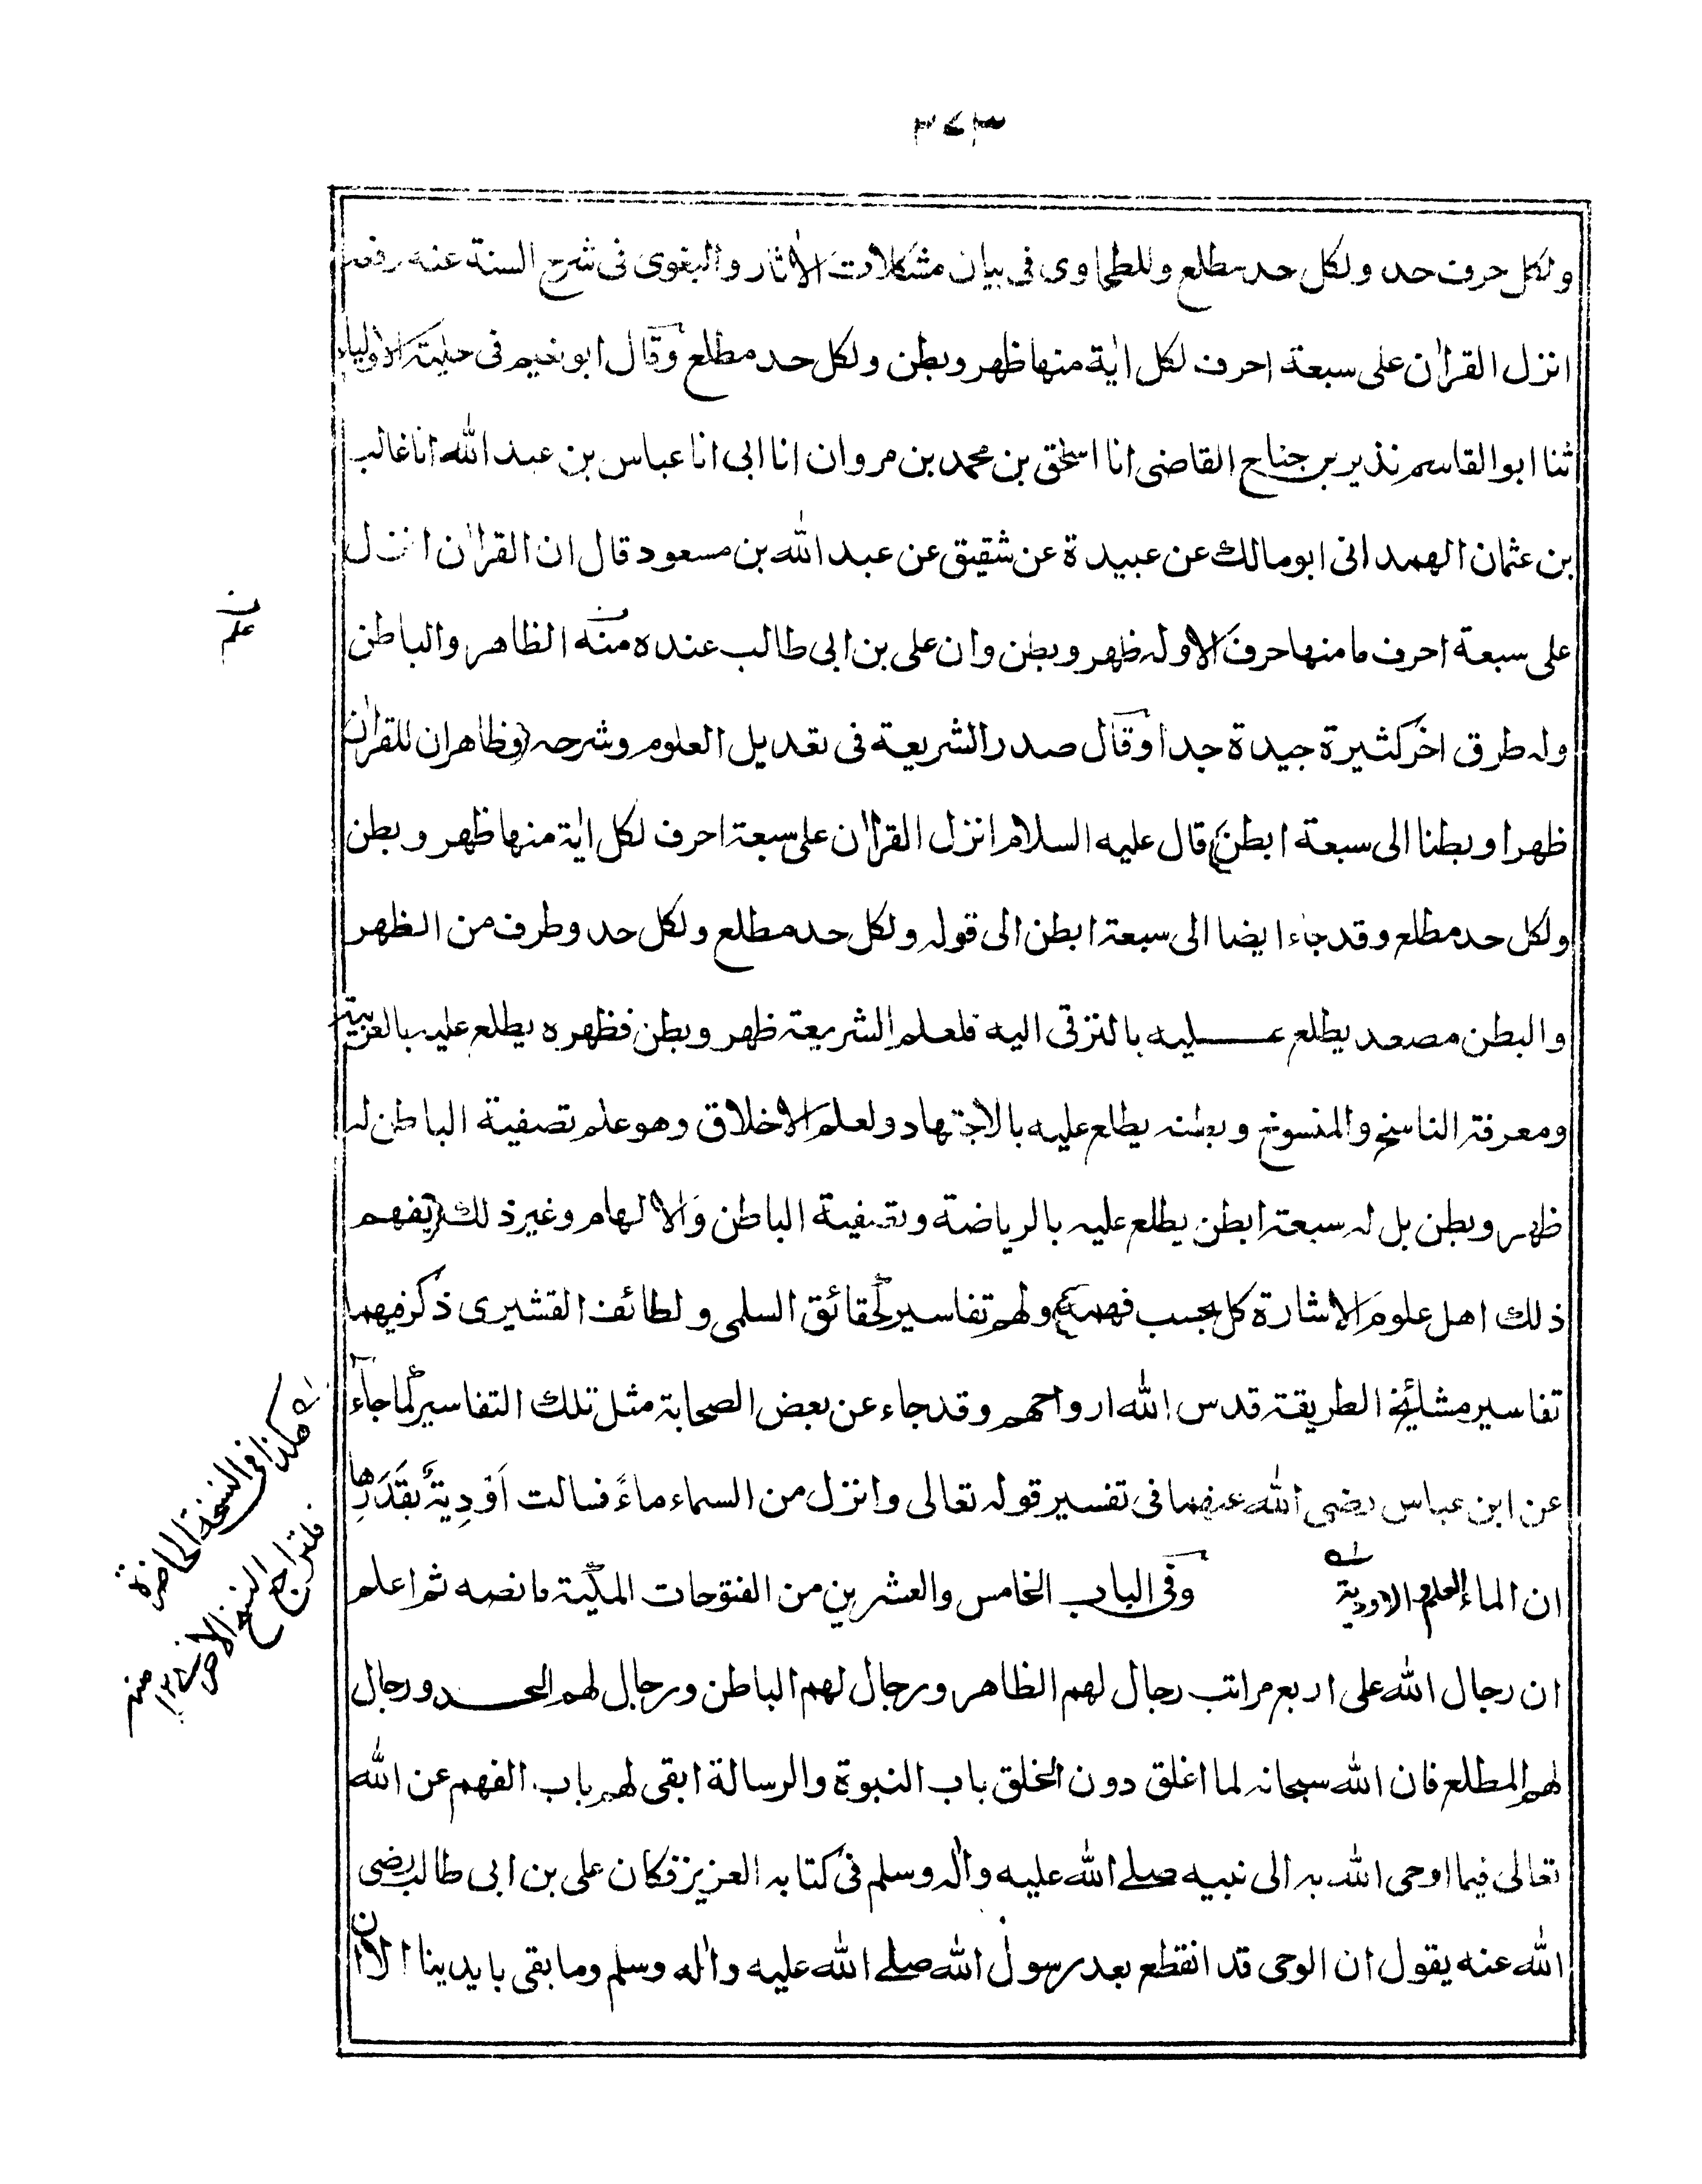 ۳۷۳
ولكل حرف حد ولكل حد مطلع وللطحاوى فى بيان مشكلات الاٰثار والبغوى فى شرح السنة عنه رفعه
انزل القراٰن على سبعة احرف لكل اٰية منها ظهر وبطن ولكل حد مطلع وقال ابو نعيم فى حلية الاولياء
ثنا ابو القاسم نذير بن جناح القاضى انا اسحٰق بن محمد بن مروان انا ابى انا عباس بن عبد الله انا غالب
بن عثمان الهمدانى ابو مالك عن عبيدة عن شقيق عن عبد الله بن مسعود قال ان القراٰن انزل
على سبعة احرف ما منها حرف الا وله ظهر وبطن وان على بن ابى طالب عنده منه الظاهر والباطن
ن
علم
وله طرق اخر كثيرة جيدة جدا وقال صدر الشريعة فى تعديل العلوم وشرحه (وظاهر ان للقراٰن
ظهرا وبطنا الى سبعة ابطن) قال عليه السلام انزل القراٰن على سبعة احرف لكل اٰية منها ظهر وبطن
ولكل حد مطلع وقد جاء ايضا الى سبعة ابطن الى قوله ولكل حد مطلع ولكل حد وطرف من الظهر
والبطن مصعد يطلع عليه بالترقى اليه فلعلم الشريعة ظهر وبطن فظهره يطلع عليه بالعربية
ومعرفة الناسخ والمنسوخ وبطنه يطلع عليه بالاجتهاد ولعلم الاخلاق وهو علم تصفية الباطن له
ظهر وبطن بل له سبعة ابطن يطلع عليه بالرياضة وتصفية الباطن والالهام وغير ذلك (يفهم
ذلك اهل علوم الاشارة كل بحسب فهمه) ولهم تفاسير كحقائق السلمى ولطائف القشيرى ذكر فيهما
تفاسير مشائخ الطريقة قدس الله ارواحهم وقد جاء عن بعض الصحابة مثل تلك التفاسير كما جاء
عن ابن عباس رضى الله عنهما فى تفسير قوله تعالى وانزل من السماء ماءً فسالت اَوْدِيَةٌ بِقَدَرِها
ان الماء العلم والاودية وفى الباب الخامس والعشرين من الفتوحات المكية ما نصه ثم اعلم
ان رجال الله على اربع مراتب رجال لهم الظاهر ورجال لهم الباطن ورجال لهم الحد ورجال
لهم المطلع فان الله سبحانه لما اغلق دون الخلق باب النبوة والرسالة ابقى لهم باب الفهم عن الله
تعالى فيما اوحى الله به الى نبيه صلے الله عليه واٰله وسلم فى كتابه العزيز فكان على بن ابى طالب رضى
الله عنه يقول ان الوحى قد انقطع بعد رسول الله صلے الله عليه واٰله وسلم وما بقى بايدينا الا ان
هكذا فى النسخة الحاضرة
فلتراجع النسخ الاخر
منه